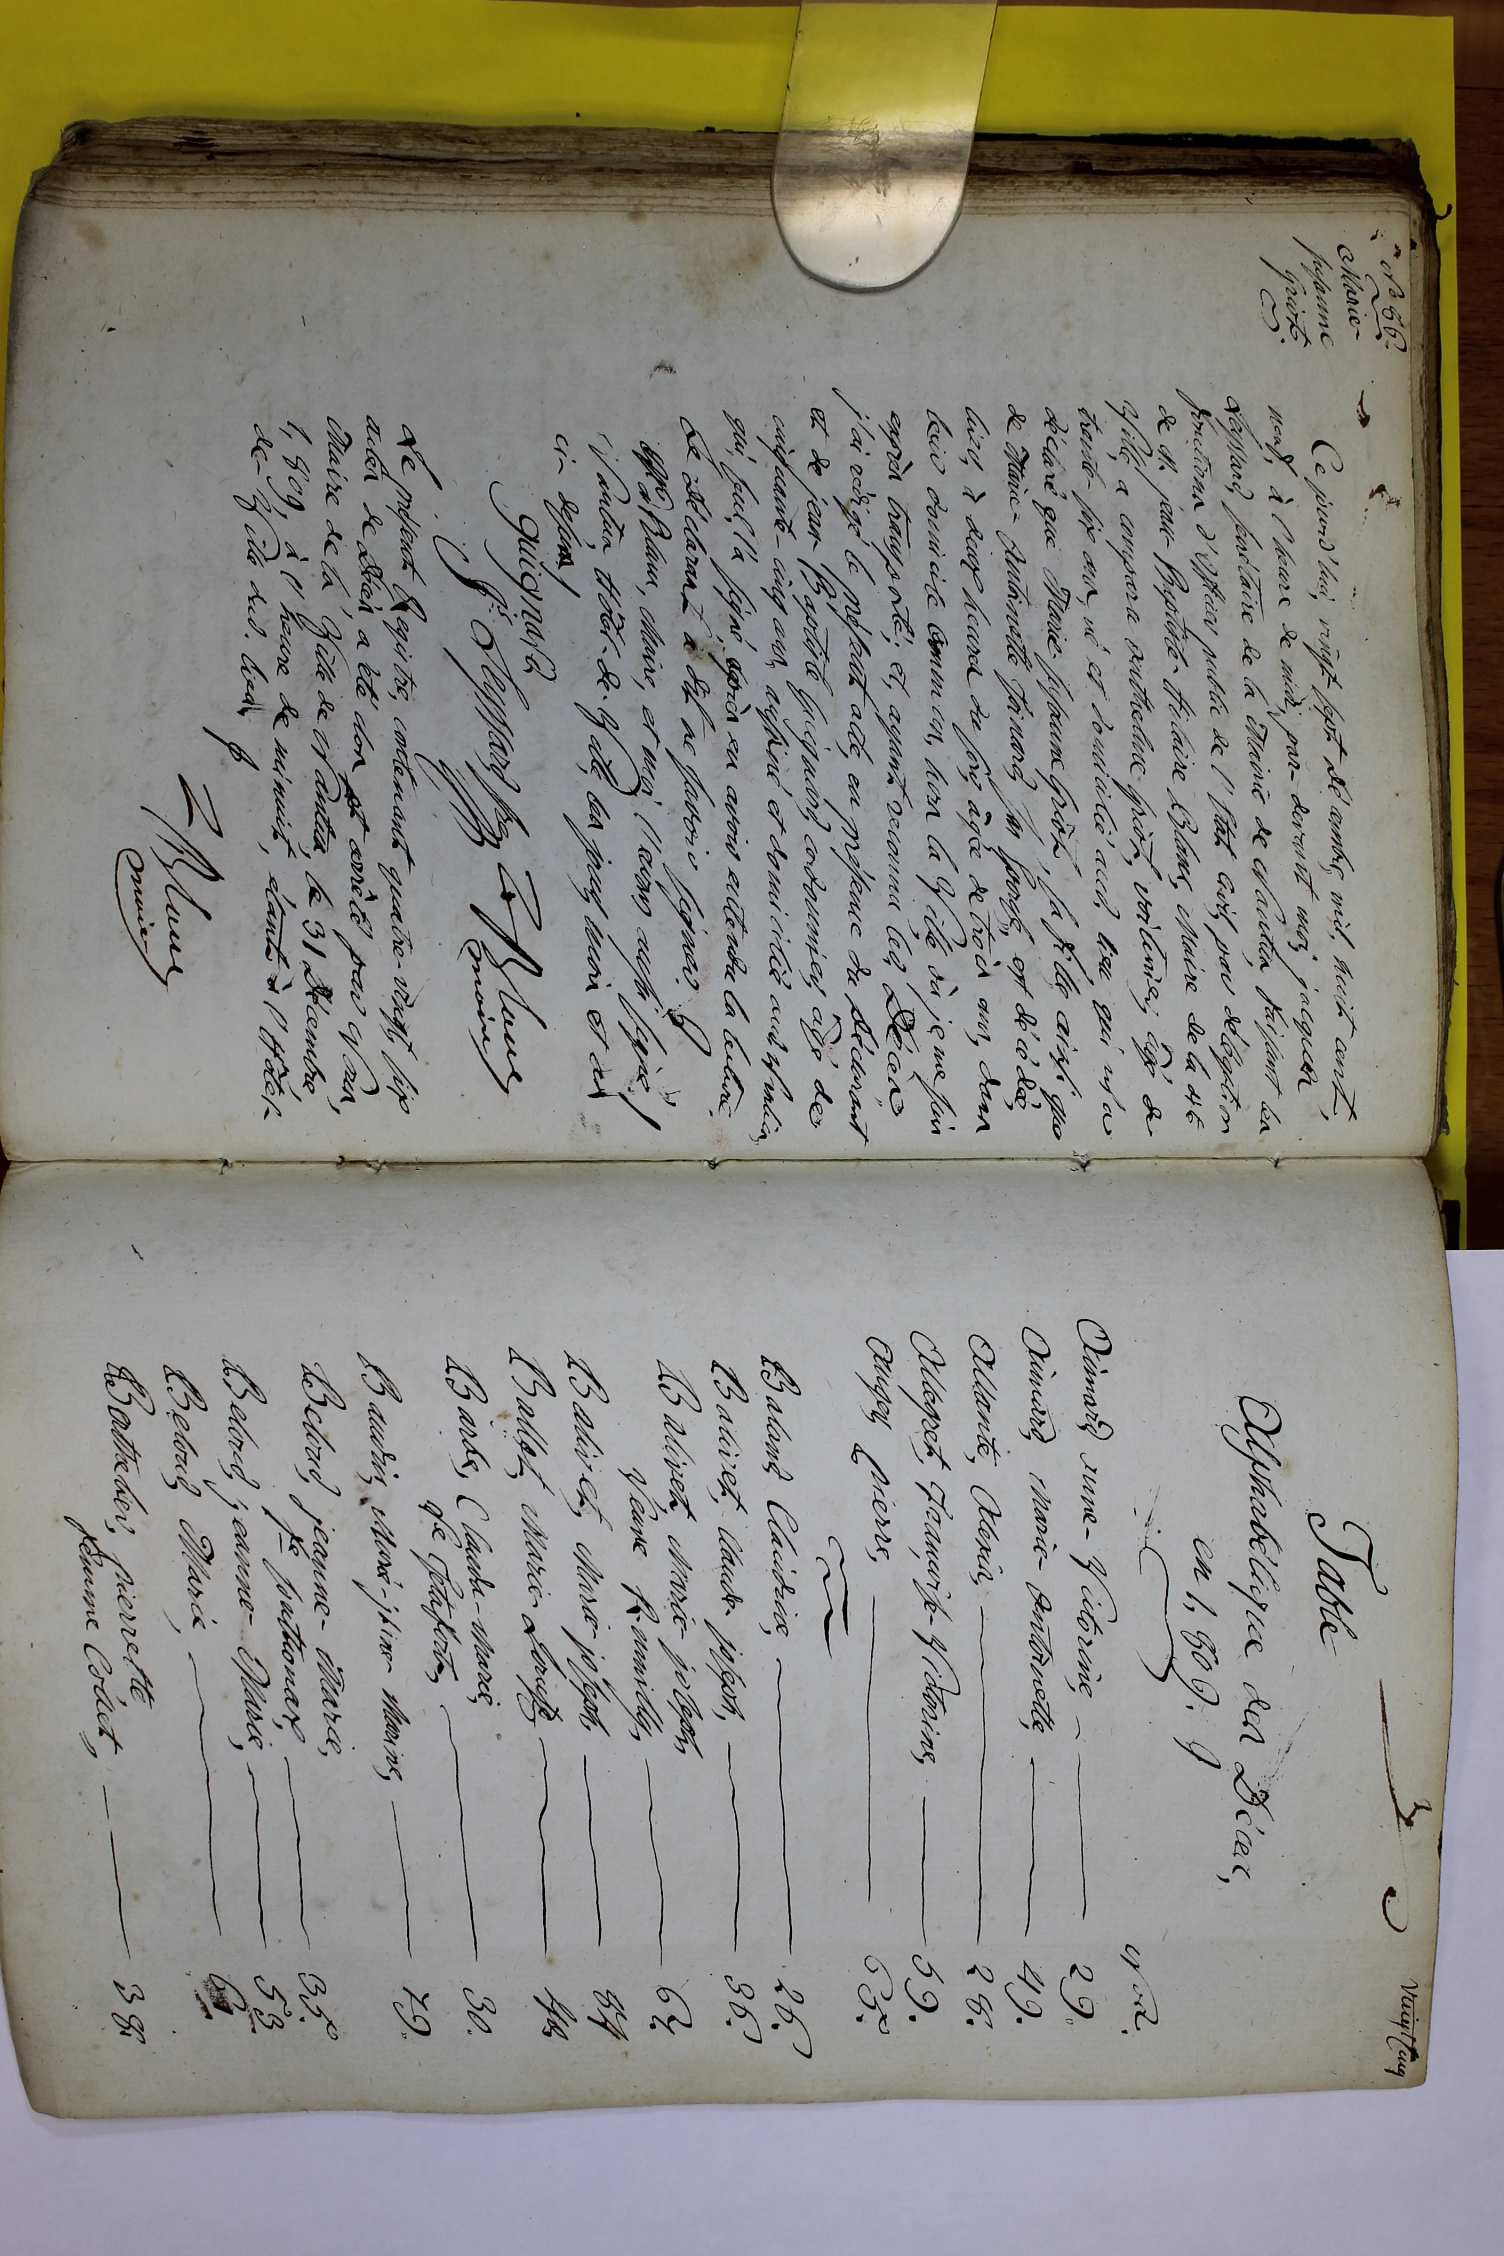 N° 86.
Marie-
susanne
Griot
Ce jourd'hui, vingt sept décembre, mil, huit cent,
neuf, à l'heure de midi, par-devant moi, jacques
Lassard, secrétaire de la Mairie de Nantua, faisant les
fonctions d'officier public de l'Etat civil, par délégation
de M. jean-Baptiste-hilaire Blanc, Maire de la dite
Ville, a comparu anthelme Griot, voiturier, âgé de
trente-six ans, né et domicilié audit lieu, qui m'a
déclaré que Marie-susanne Griot, sa fille ainsi que
de Marie-Antoinette son épouse, est décédée,
hier, à deux heures du soir, âgée de trois ans, dans
leur domicile commun, hors la Ville où je me suis
exprès transporté; et, ayant reconnu led. Décès,
j'ai rédigé le présent acte, en présence du déclarant
et de jean Baptiste Guignard, cordonnier, âgé de
cinquante-cinq ans, aussi né et domicilié aud. Nantua,
qui, seul, l'a signé après en avoir entendu la lecture,
Le Déclarant a dit ne savoir signer.
Blanc, Maire, et moi, l'avons aussi signé
Nantua, Hôtel-de-Ville, les jour, mois et an
ci-dessus,
Guignard
Lassard Blanc
maire
Le présent Registre, contenant quatre-vingt, six
actes de Décès a été clos et arrêté par Nous,
Maire de la Ville de Nantua, le 31 Décembre,
1,809, à l'heure de minuit, étant à l'Hôtel-
de-Ville dud. lieu.
Blanc
maire
Vingt cinq
Table
Alphabétique des Décès,
en 1,809.
Nos.
Aimard, anne-Victorine, 29.
Aimard, marie-Antoinette 49.
Allante, Alexis, 28.
Allopet, Françoise-Victorine, 59.
auger, pierre, 65.
Baland, Claudine, 26.
Balivet, Claude-joseph, 36.
Balivet, Marie-joseph,
Veuve Romilly, 62.
Balivet, Marie-joseph, 84
Ballet, Marie-Louise,
Barbe, Claude-Marie, 30.
Baudin, Marie-Marine, 79.
Belord, jeanne-Marie, 35.
Belord, jeanne-Marie, 53
Beloud, Marie, 61.
Berthelier, pierrette
femme Collet, 38.